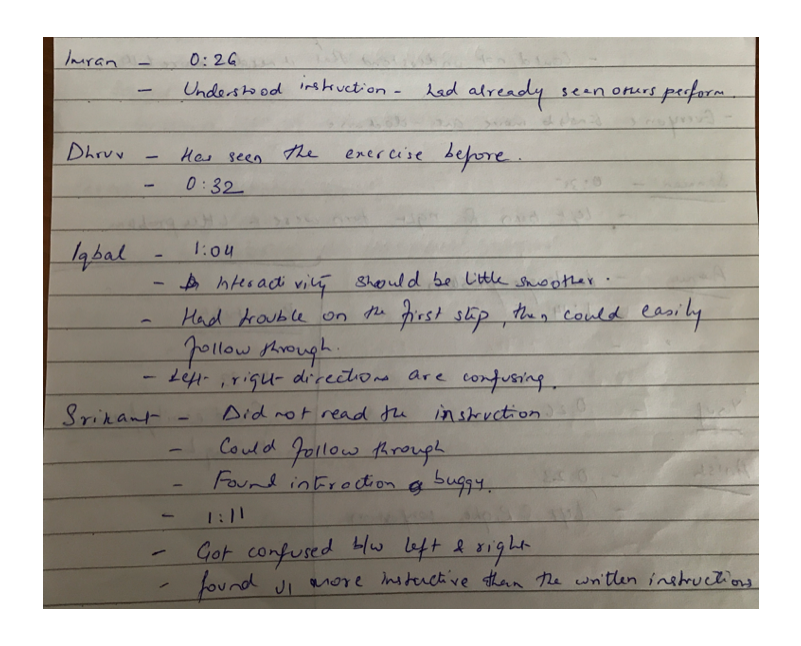 Imran - 0:26
- Understood instruction - had already seen others perform.
Dhruv - Has seen the exercise before.
- 0:32
Iqbal - 1:04
- Interactivity should be little smoother.
- Had trouble on the first step, then could easily
follow through.
- Left, right directions are confusing.
Srikant - Did not read the instruction
- Could follow through
- Found intraction buggy.
- 1:11
- Got confused b/w left & right
- found UI more instructive than the written instructions